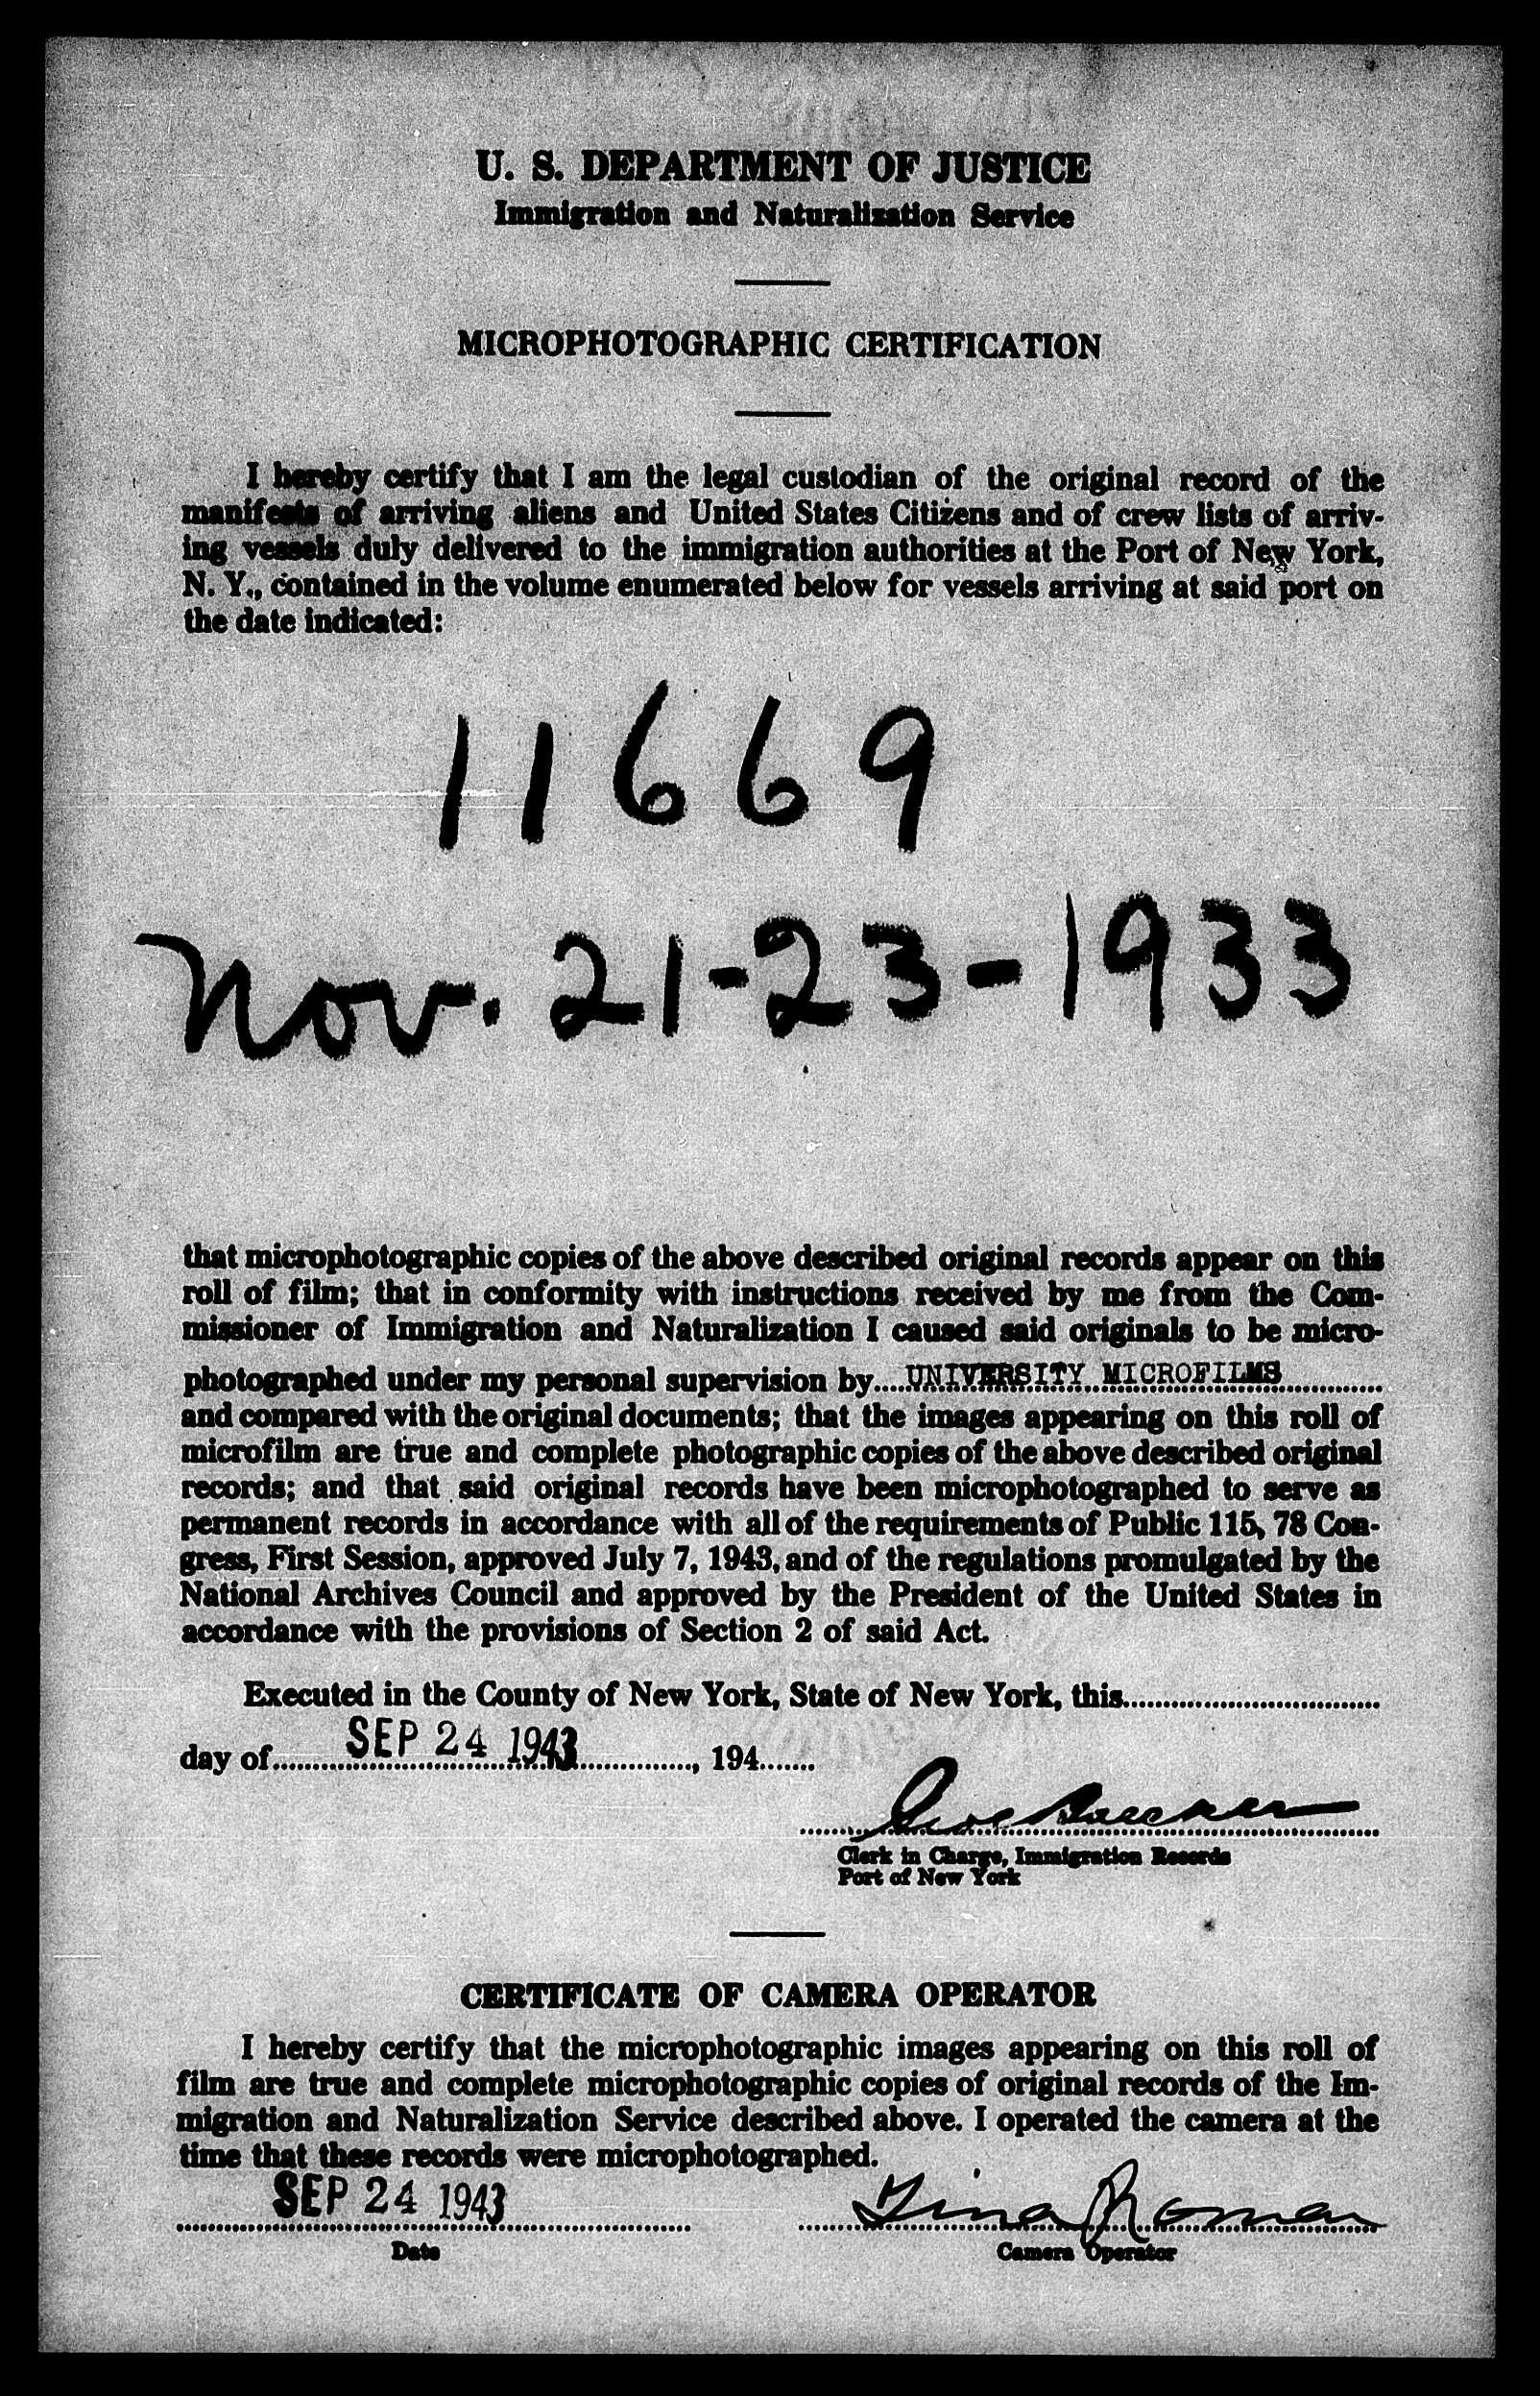 U. S. DEPARTMENT OF JUSTICE
Immigration and Naturalization Service
MICROPHOTOGRAPHIC CERTIFICATION
I hereby certify that I am the legal custodian of the original record of the
manifests of arriving aliens and United States Citizens and of crew lists of arriv-
ing vessels duly delivered to the immigration authorities at the Port of New York,
N. Y., contained in the volume enumerated below for vessels arriving at said port on
the date indicated:
11669
Nov. 21-23-1933
that microphotographic copies of the above described original records appear on this
roll of film; that in conformity with instructions received by me from the Com-
missioner of Immigration and Naturalization I caused said originals to be micro-
photographed under my personal supervision by UNIVERSITY MICROFILMS
and compared with the original documents; that the images appearing on this roll of
microfilm are true and complete photographic copies of the above described original
records; and that said original records have been microphotographed to serve as
permanent records in accordance with all of the requirements of Public 115, 78 Con-
gress, First Session, approved July 7, 1943, and of the regulations promulgated by the
National Archives Council and approved by the President of the United States in
accordance with the provisions of Section 2 of said Act.
Executed in the County of New York, State of New York, this
day of SEP 24 1943, 194
Clerk in Charge, Immigration Records
Port of New York
CERTIFICATE OF CAMERA OPERATOR
I hereby certify that the microphotographic images appearing on this roll of
film are true and complete microphotographic copies of original records of the Im-
migration and Naturalization Service described above. I operated the camera at the
time that these records were microphotographed.
SEP 24 1943 Tina Roman
Date Camera Operator